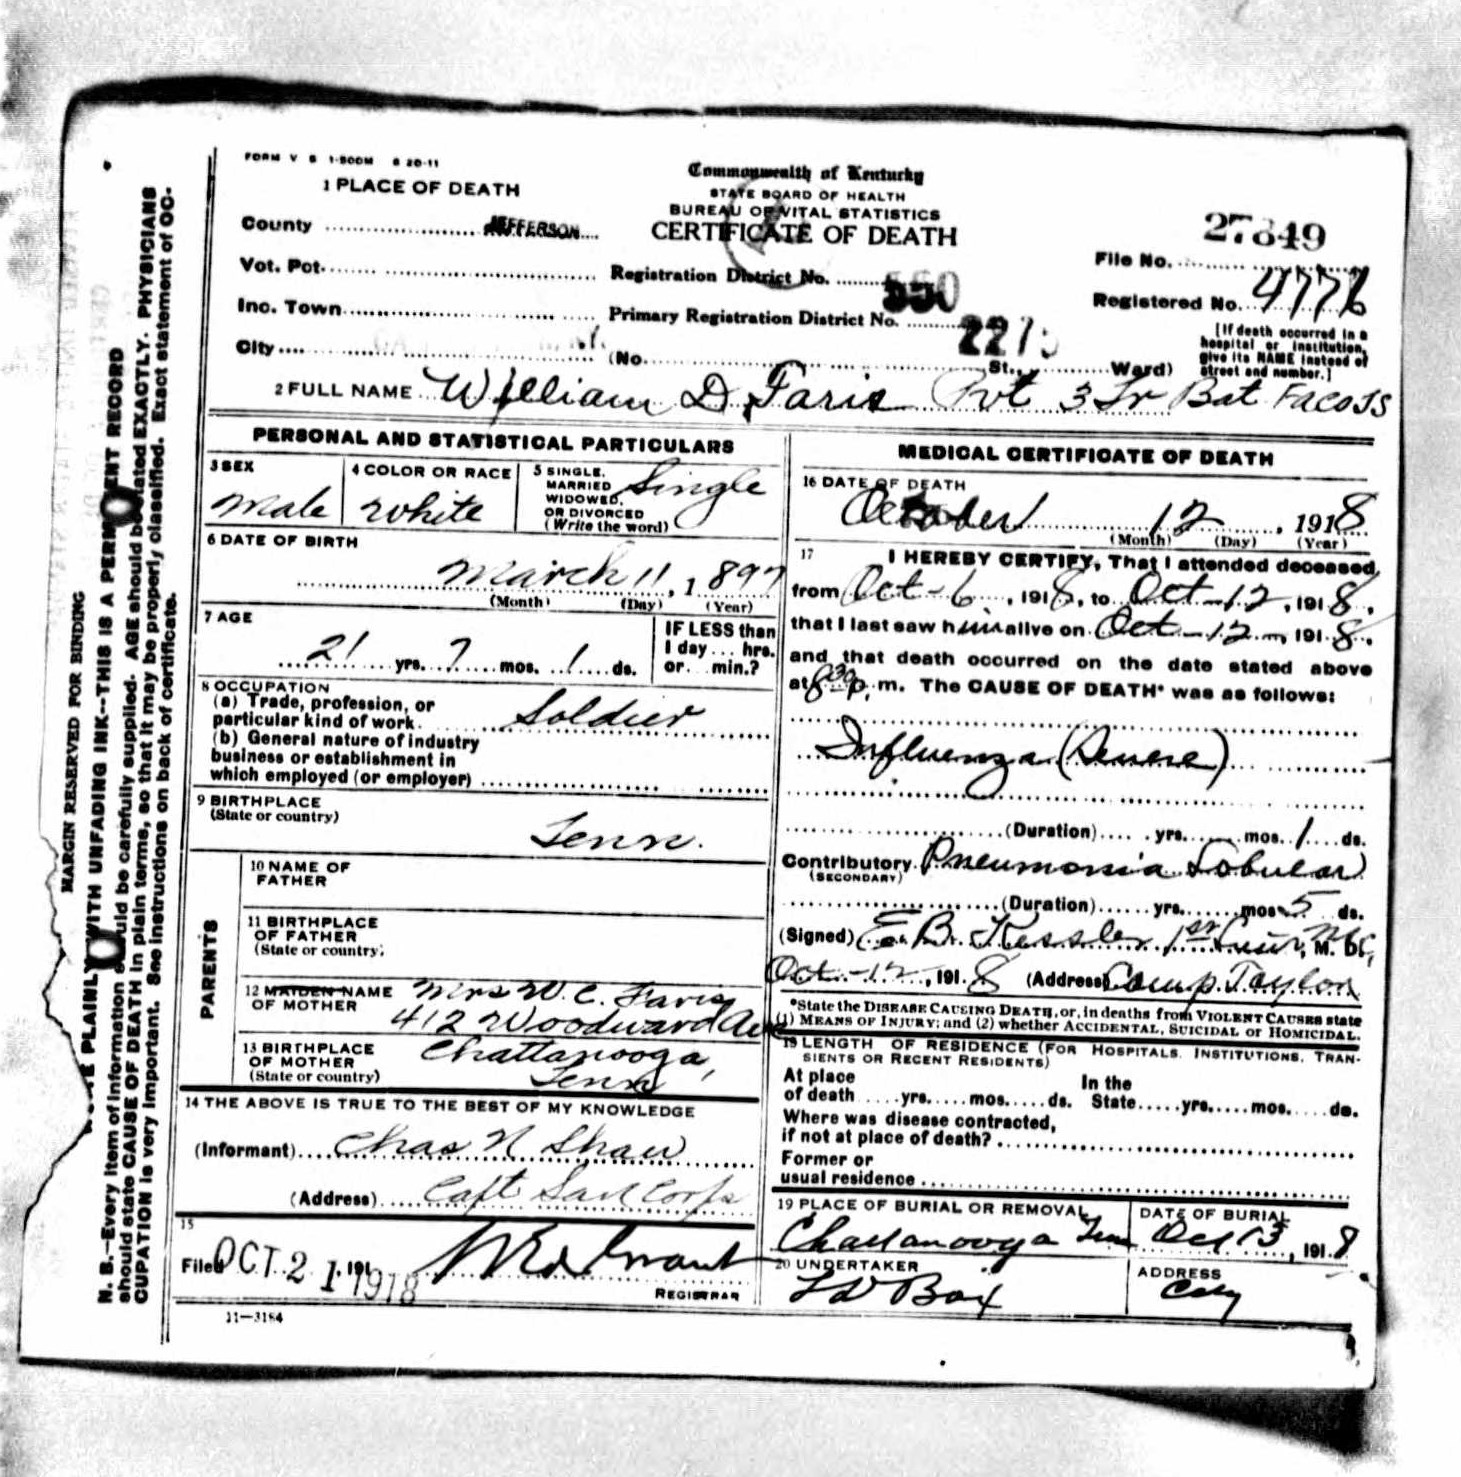 FORM V S 1-500M 8 20-11
1 PLACE OF DEATH
County JEFFERSON
Vot. Pct.
Inc. Town
City
Commonwealth of Kentucky
STATE BOARD OF HEALTH
BUREAU OF VITAL STATISTICS
CERTIFICATE OF DEATH
Registration District No. 550
Primary Registration District No.
(No. St., Ward)
27849
File No.
Registered No.
[If death occurred in a
hospital or institution,
give its NAME instead of
street and number.]
2 FULL NAME William D. Faris Pvt 3 Tr Bat
PERSONAL AND STATISTICAL PARTICULARS
3 SEX
Male
4 COLOR OR RACE
White
5 SINGLE,
MARRIED
WIDOWED,
OR DIVORCED
(Write the word)
Single
6 DATE OF BIRTH
March 11, 1897
(Month) (Day) (Year)
7 AGE
21 yrs. 7 mos. 1 ds.
IF LESS than
1 day ... hrs.
or ... min.?
8 OCCUPATION
(a) Trade, profession, or
particular kind of work. Soldier
(b) General nature of industry
business or establishment in
which employed (or employer)
9 BIRTHPLACE
(State or country)
Tenn.
PARENTS
10 NAME OF
FATHER
11 BIRTHPLACE
OF FATHER
(State or country)
12 MAIDEN NAME
OF MOTHER
Mrs W. C. Faris
412 Woodward Ave
13 BIRTHPLACE
OF MOTHER
(State or country)
Chattanooga,
Tenn
14 THE ABOVE IS TRUE TO THE BEST OF MY KNOWLEDGE
(Informant) Chas N Shaw
(Address) Capt San Corps
15
Filed OCT 21 1918
REGISTRAR
11—3184
MEDICAL CERTIFICATE OF DEATH
16 DATE OF DEATH
October 12, 1918
(Month) (Day) (Year)
17 I HEREBY CERTIFY, That I attended deceased
from Oct-6, 1918, to Oct-12, 1918,
that I last saw him alive on Oct-12, 1918.
and that death occurred on the date stated above
at 8:30 p. m. The CAUSE OF DEATH* was as follows:
Influenza (Severe)
(Duration) yrs. mos. 1 ds.
Contributory Pneumonia Lobular
(SECONDARY)
(Duration) yrs. mos. 5 ds.
(Signed) E. B. Kessler 1st Lieut, M. C.
Oct-12, 1918 (Address) Camp Taylor
*State the DISEASE CAUSING DEATH, or, in deaths from VIOLENT CAUSES state
(1) MEANS OF INJURY; and (2) whether ACCIDENTAL, SUICIDAL or HOMICIDAL.
18 LENGTH OF RESIDENCE (FOR HOSPITALS. INSTITUTIONS, TRAN-
SIENTS OR RECENT RESIDENTS)
At place In the
of death yrs. mos. ds. State yrs. mos. ds.
Where was disease contracted,
if not at place of death?
Former or
usual residence
19 PLACE OF BURIAL OR REMOVAL
Chattanooga Tenn
DATE OF BURIAL
Oct 13, 1918
20 UNDERTAKER
ADDRESS
City
MARGIN RESERVED FOR BINDING
PLAINLY WITH UNFADING INK--THIS IS A PERMANENT RECORD
N. B.—Every item of information should be carefully supplied. AGE should be stated EXACTLY. PHYSICIANS
should state CAUSE OF DEATH in plain terms, so that it may be properly classified. Exact statement of OC-
CUPATION is very important. See instructions on back of certificate.